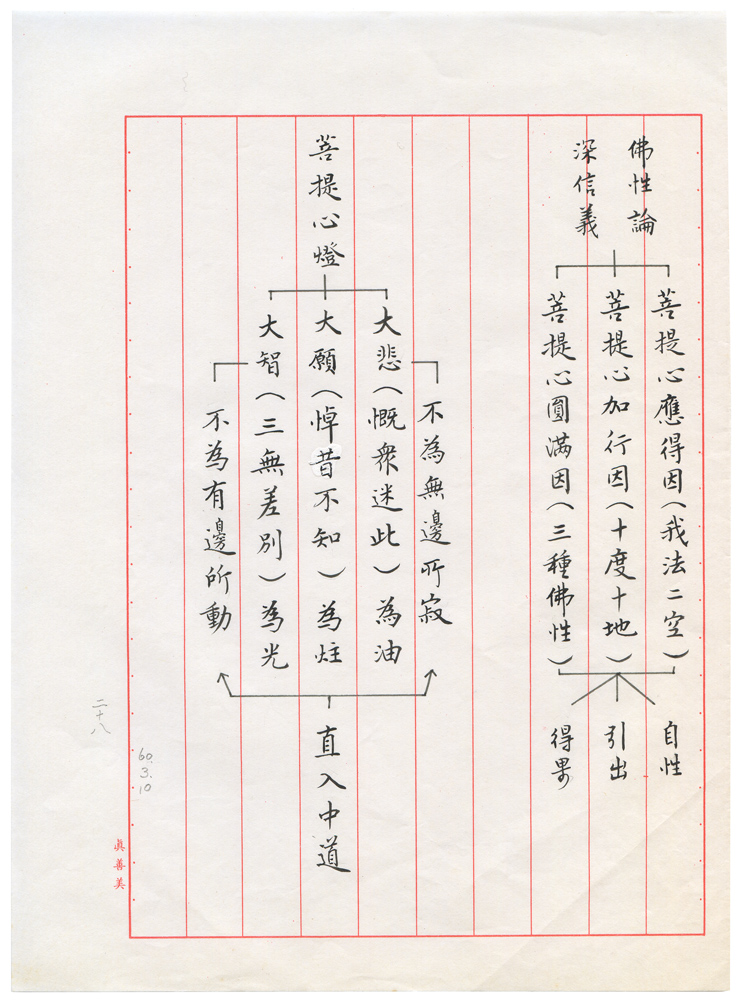 佛性論
深信義
菩提心應得因（我法二空）
菩提心加行因（十度十地）
菩提心圓滿因（三種佛性）
自性
引出
得果
菩提心燈
不為無邊所寂
大悲（慨眾迷此）為油
大願（悼昔不知）為炷
大智（三無差別）為光
不為有邊所動
直入中道
二十八
60.3.10
真善美